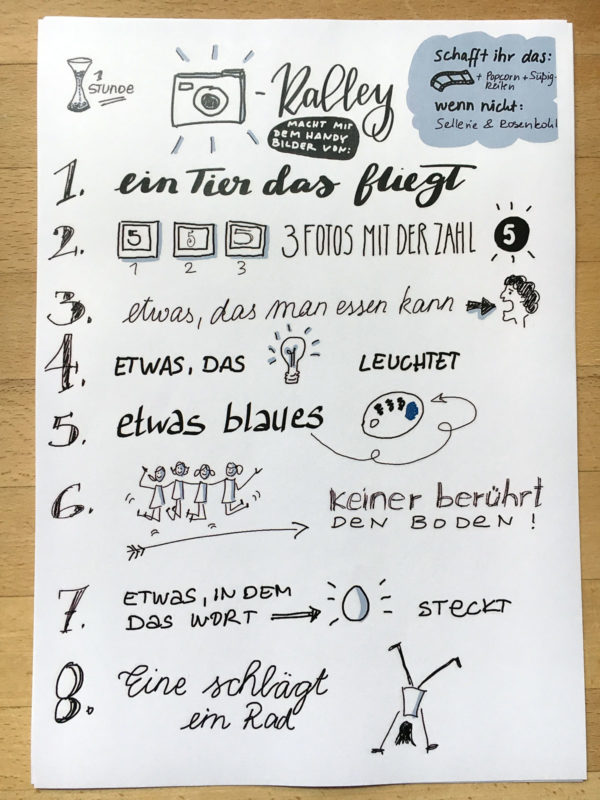 1
STUNDE
5
-Ralley
MACHT MIT
DEM HANDY
BILDER VON:
schafft ihr das:
+ Popcorn + Süßig-
keiten
wenn nicht:
Sellerie & Rosenkohl
1. ein Tier das fliegt
2. 5 5 5 3 FOTOS MIT DER ZAHL 5
1 2 3
3. etwas, das man essen kann
4. ETWAS, DAS LEUCHTET
5. etwas blaues
6. keiner berührt
DEN BODEN!
7. ETWAS, IN DEM
DAS WORT STECKT
8. Eine schlägt
ein Rad